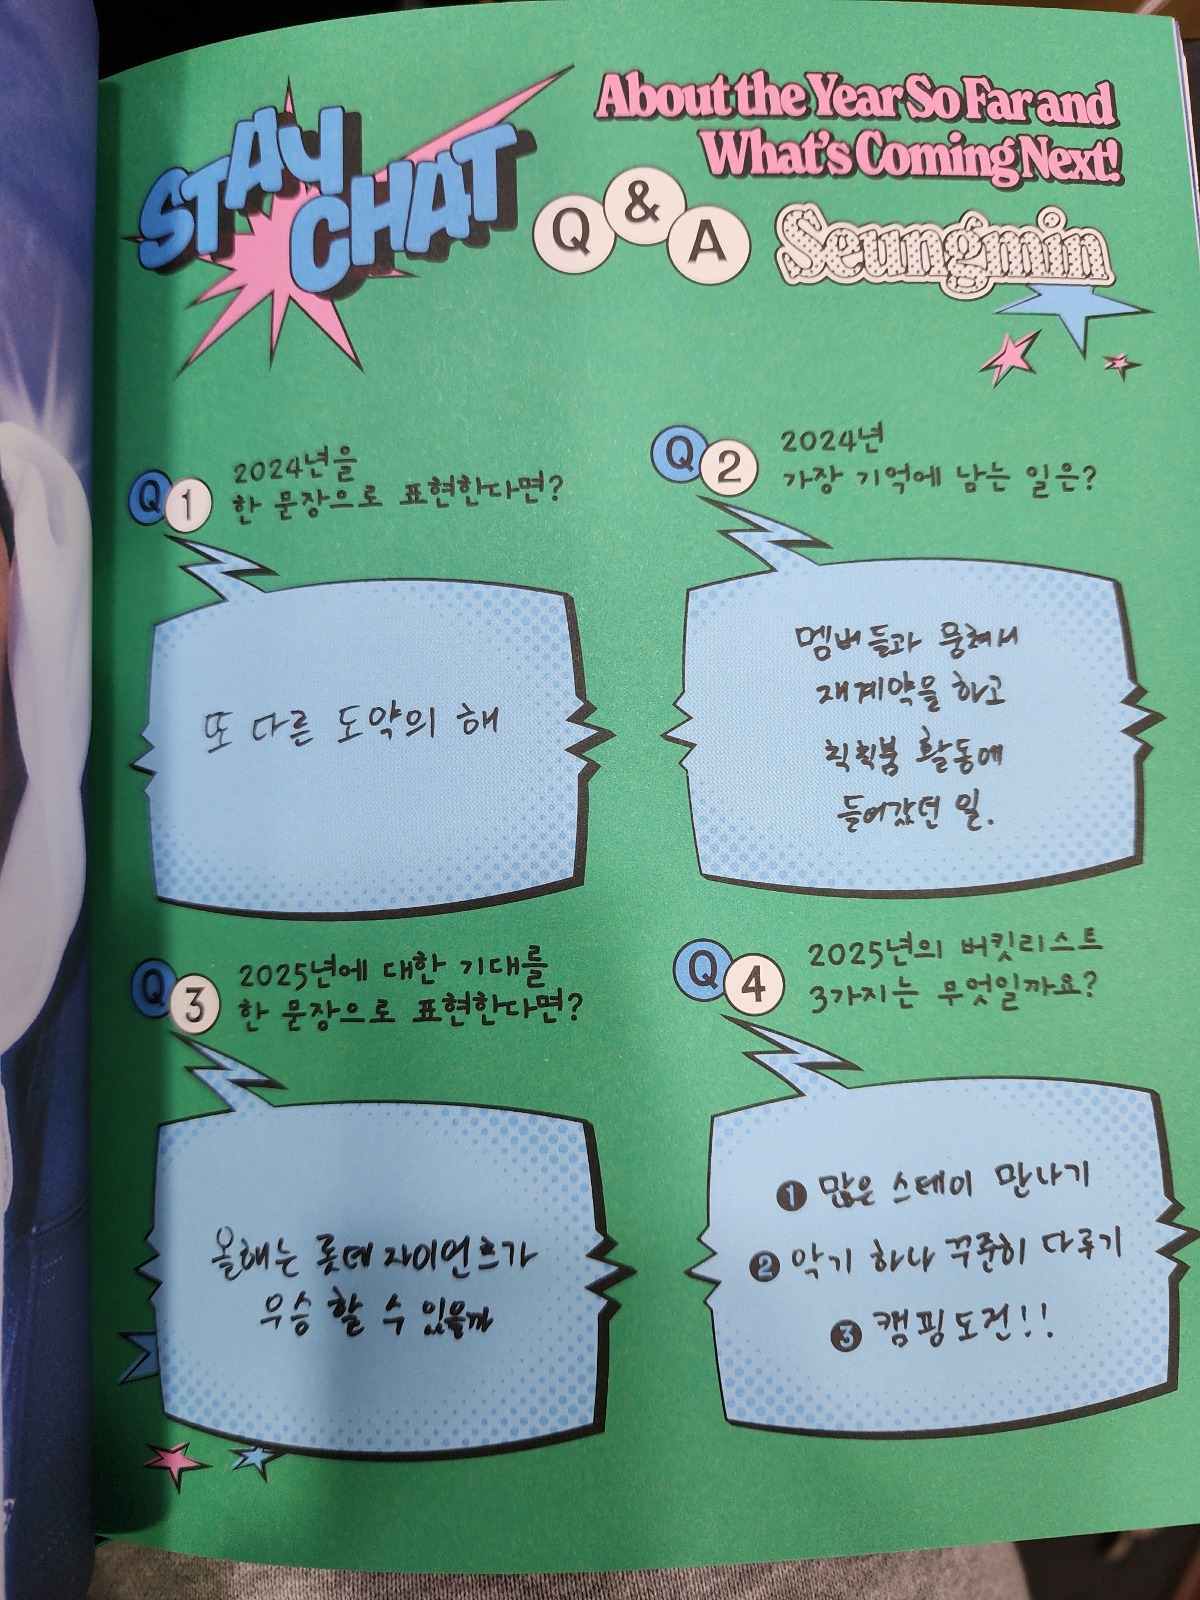 STAY CHAT
About the Year So Far and
What's Coming Next!
Q & A Seungmin
Q1 2024년을
한 문장으로 표현한다면?
또 다른 도약의 해
Q2 2024년
가장 기억에 남는 일은?
멤버들과 뭉쳐서
재계약을 하고
칙칙붐 활동에
들어갔던 일.
Q3 2025년에 대한 기대를
한 문장으로 표현한다면?
올해는 롯데 자이언츠가
우승 할 수 있을까
Q4 2025년의 버킷리스트
3가지는 무엇일까요?
① 많은 스테이 만나기
② 악기 하나 꾸준히 다루기
③ 캠핑도전!!